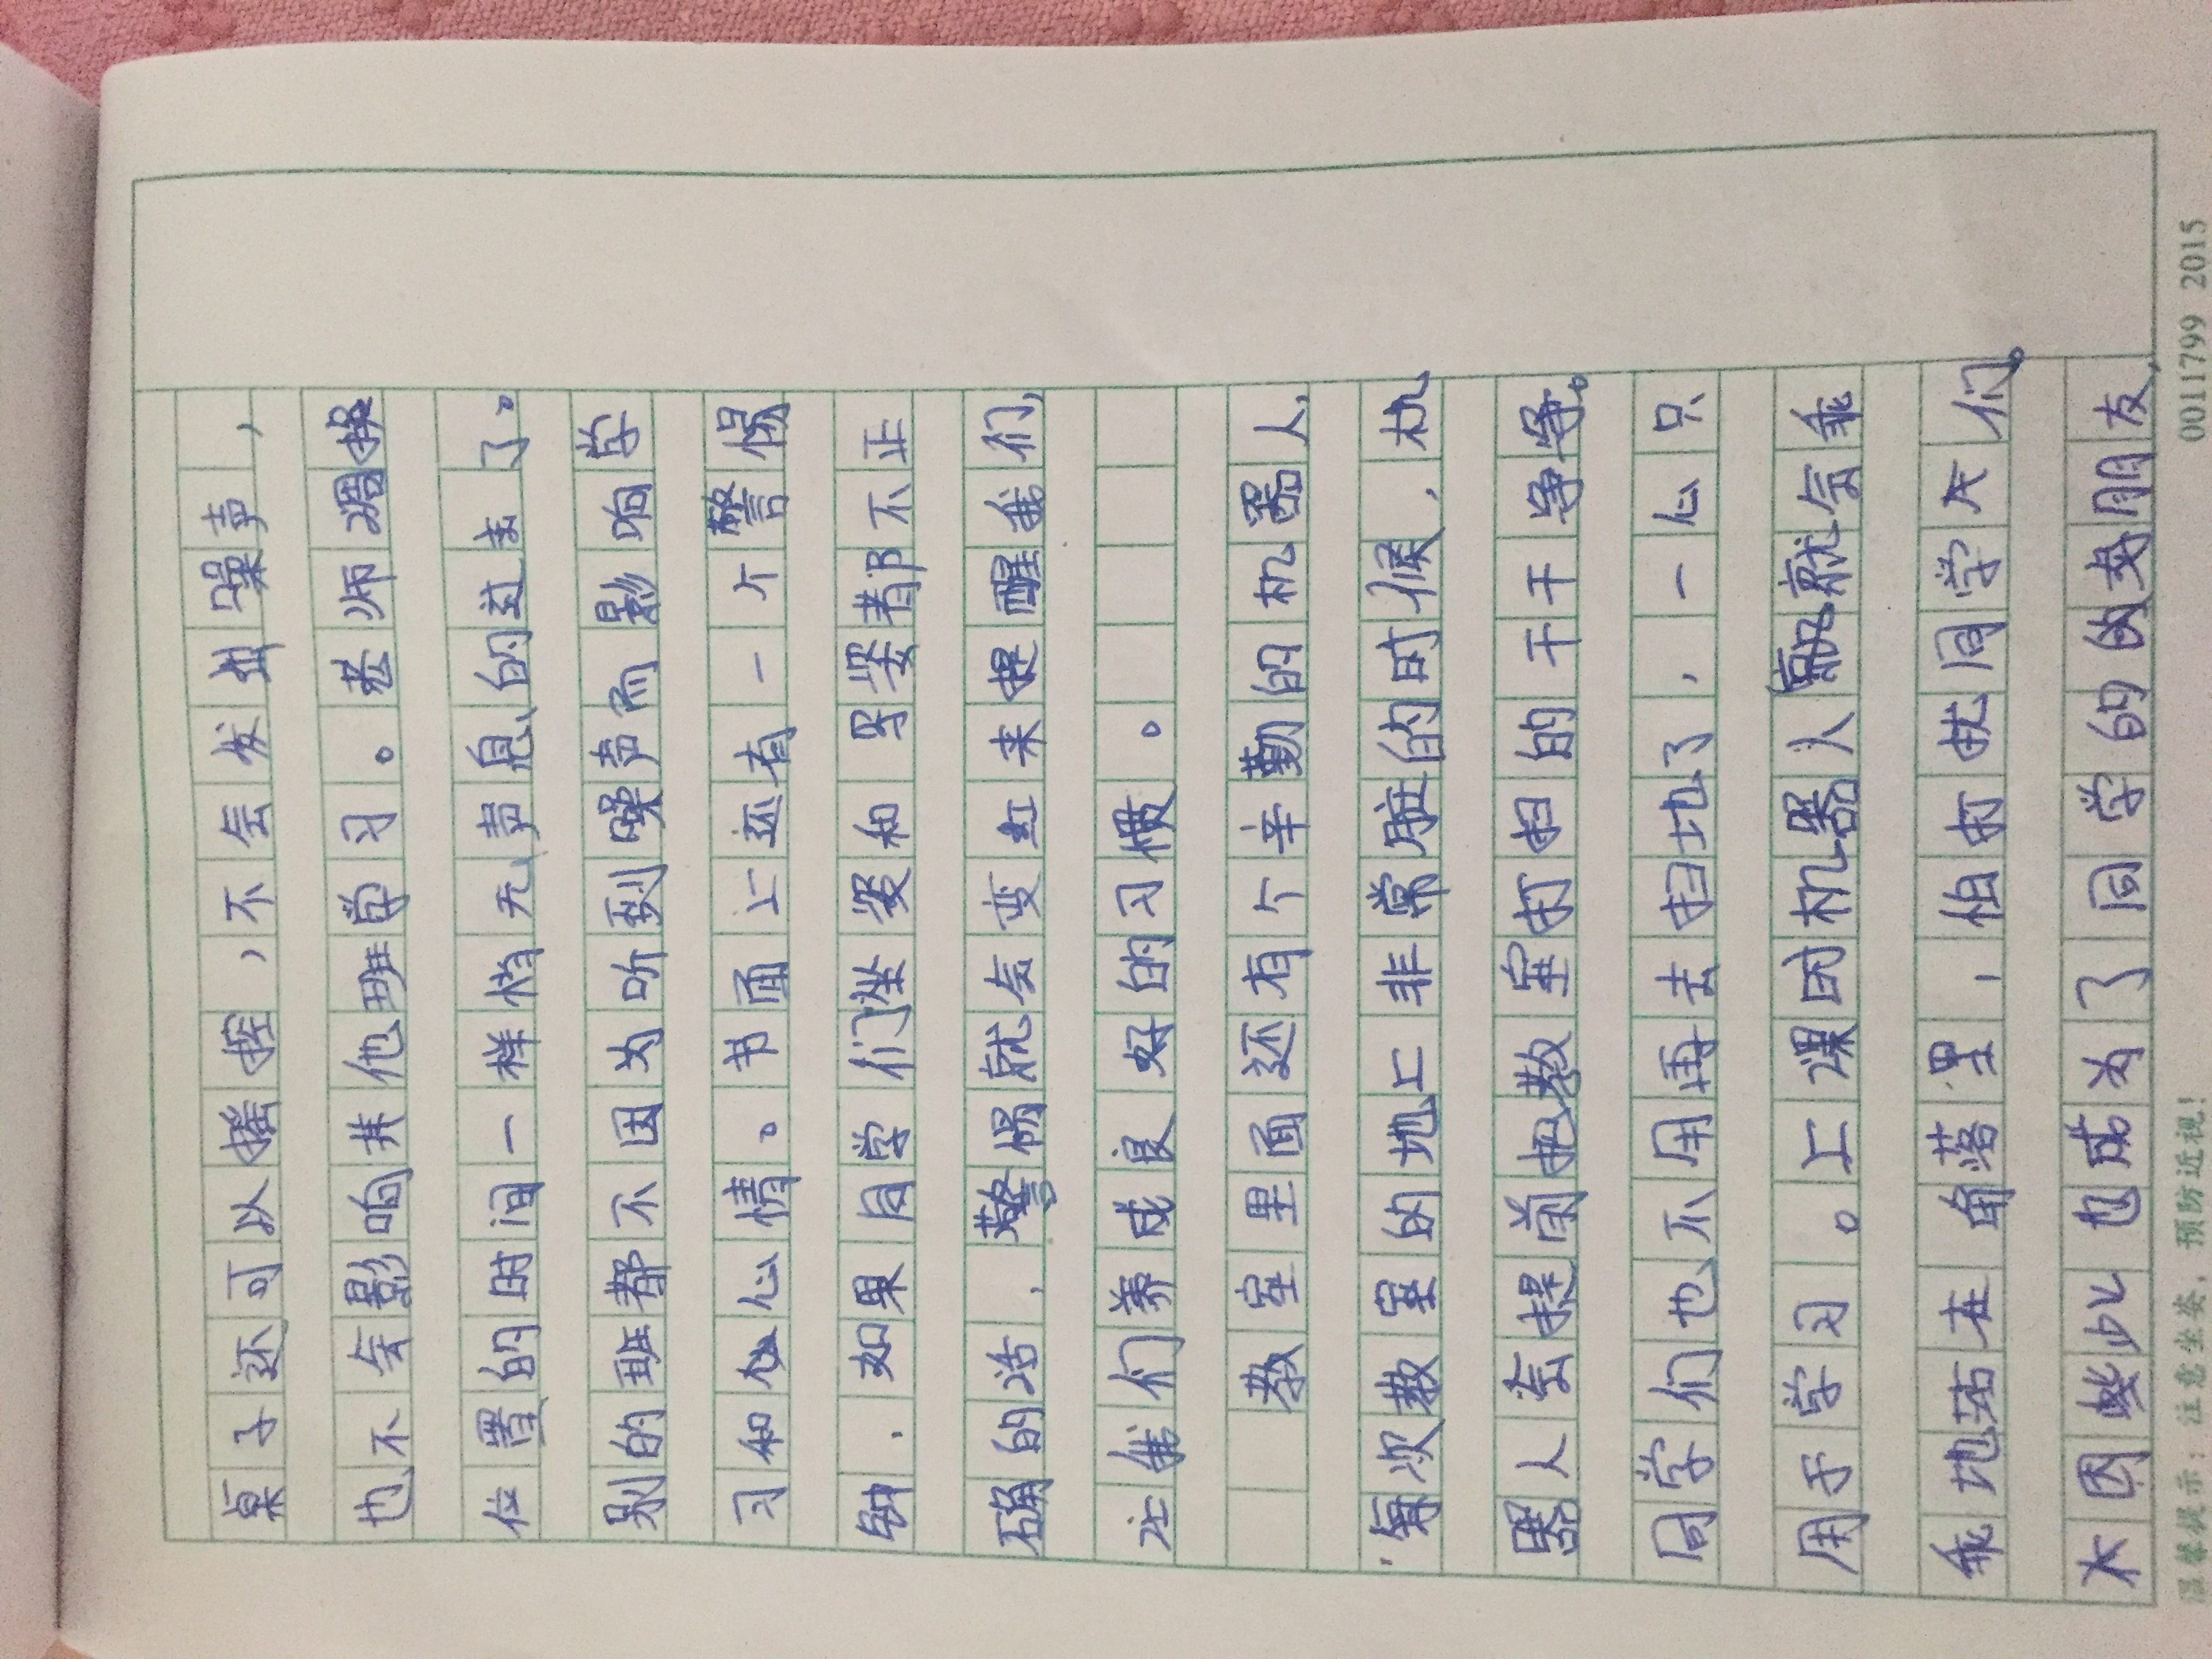 桌子还可以摇控,不会发出噪声,
也不会影响其他班学习。老师调换
位置的时间一样悄无声息的过去了。
别的班都不因为听到噪声而影响学
习和心情。书面上还有一个警惕
钟,如果同学们坐姿和 都不正
确的话,警惕就会变红来提醒我们,
让我们养成良好的习惯。
教室里面还有个辛勤的机器人,
每次教室的地上非常脏的时候,机
器人会提前把教室打扫的干干争争。
同学们也不用再去扫地了,一心只
用于学习。上课时机器人就会乖
乖地站在角落里,怕打扰同学术们。
木因此也成为了同学的的好朋友,
温馨提示:注意坐姿,预防近视!
0011799 2015